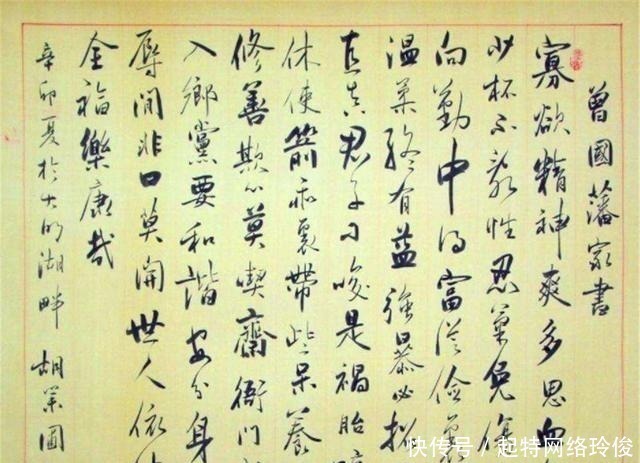 曾國藩家書
寡欲精神爽多思血
少杯不亂性忍氣免傷
自勤中得富從儉
溫柔終有益強暴必招
直真君子刁唆是禍胎暗
休使箭乖裏帶些呆養
修善欺心莫喫齋衙門
入鄉黨要和諧安分身
辱閒非口莫開世人依
全福樂康哉
辛卯夏於大明湖畔 胡
快传号 / 起特网络玲俊